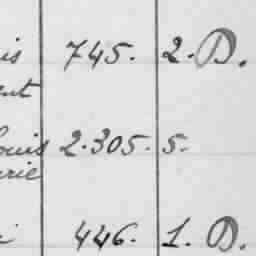 is 745. 2. D.
ent
Louis 2.305. 5.
urie
i 446. 1. D.